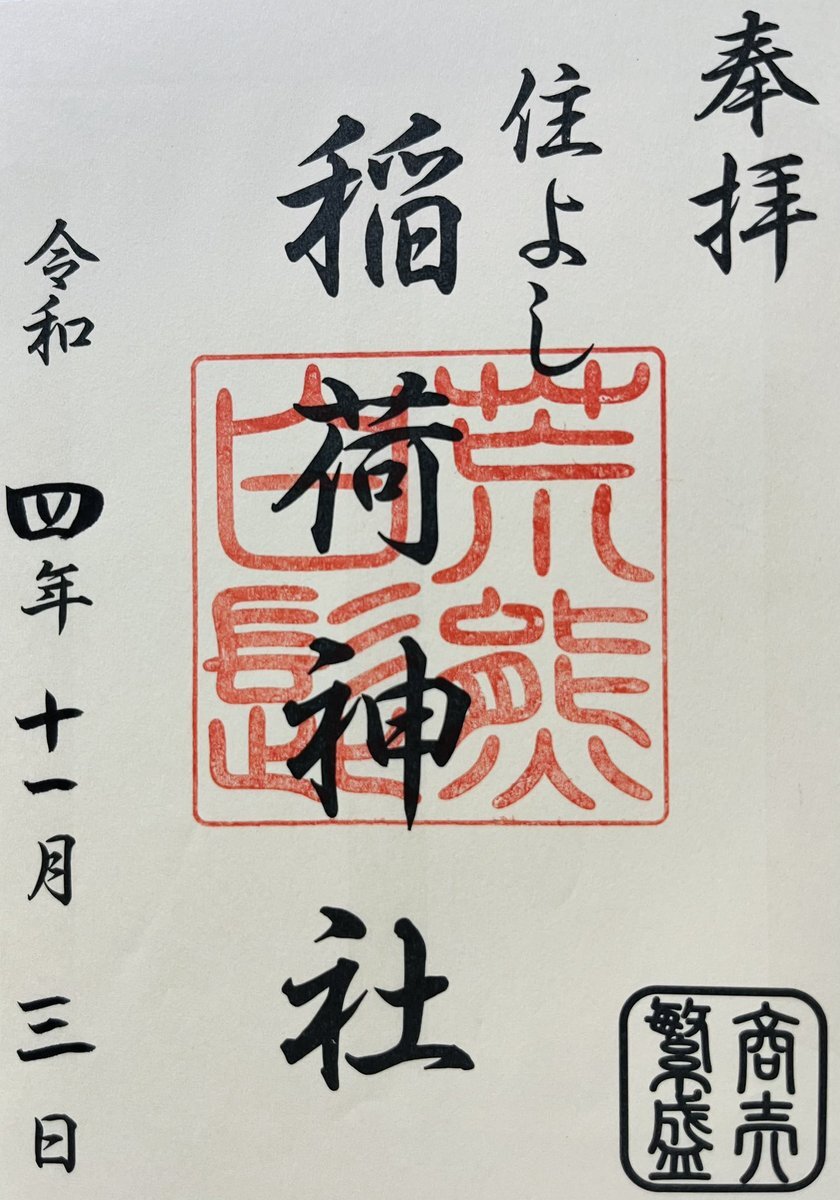 奉拝
住よし
稲荷神社
荒熊
白髭
令和四年十一月三日
商売
繁盛